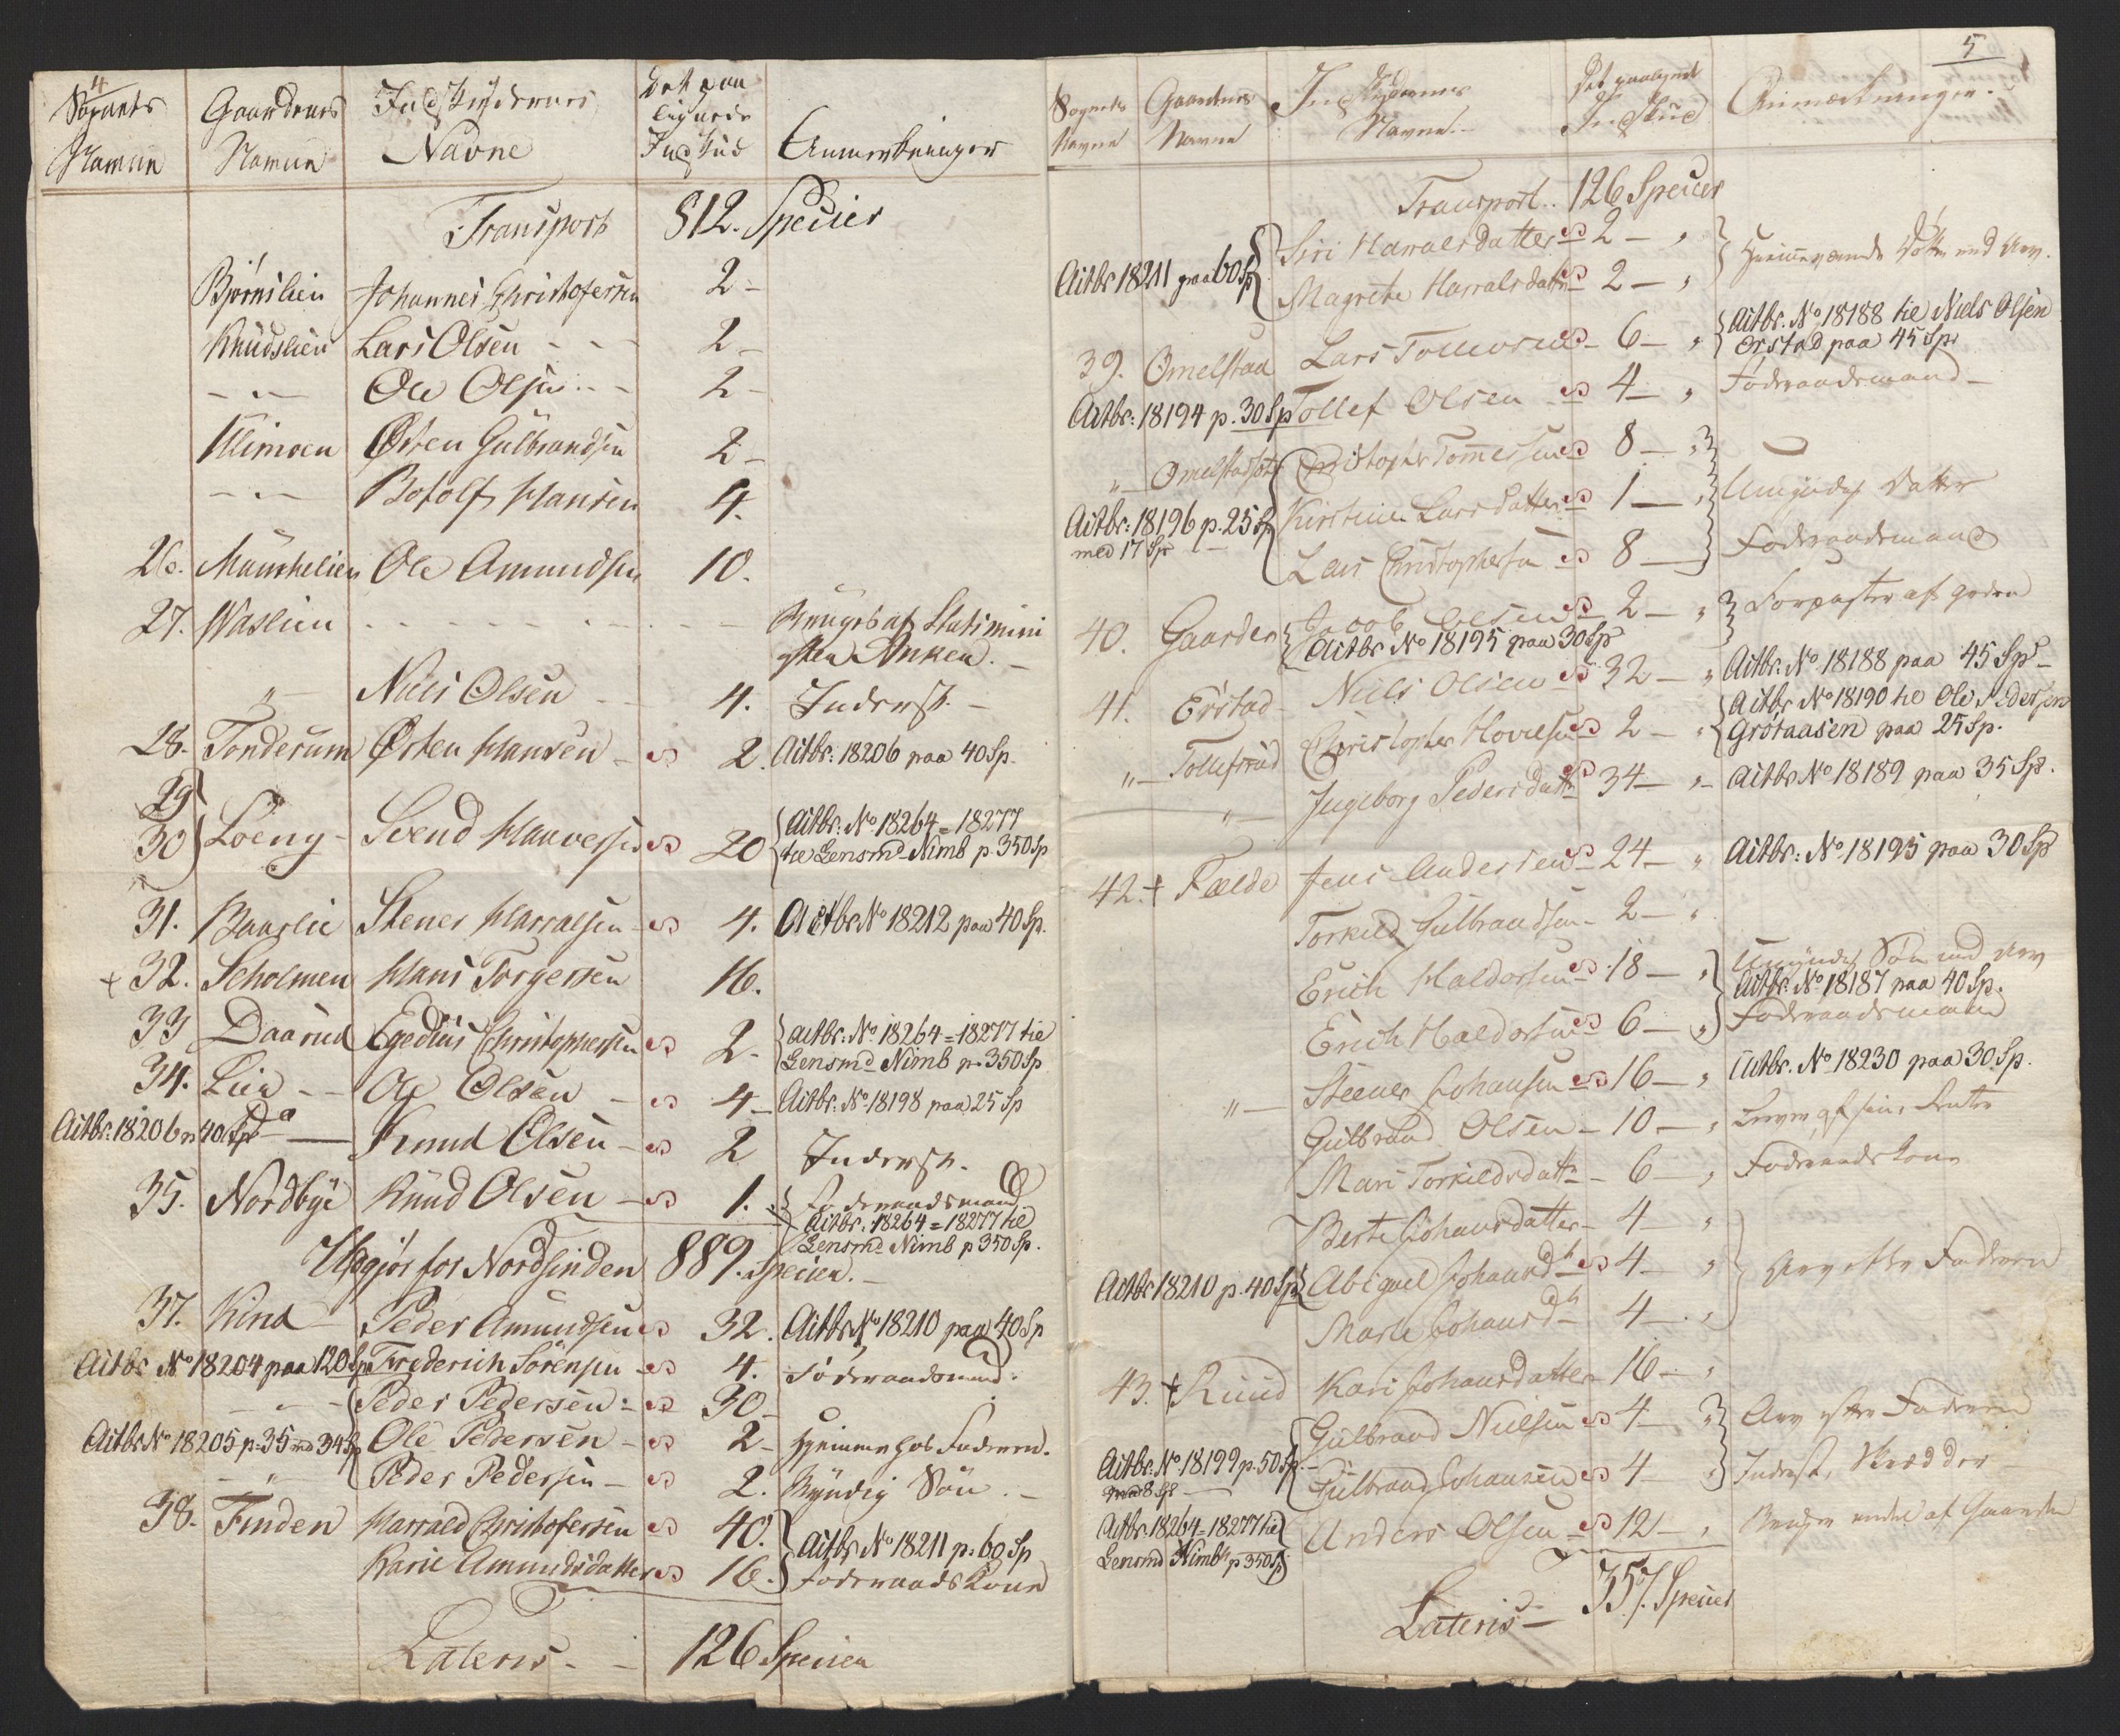 4
Sognets Navne | Gaardenes Navne | Indskydernes Navne | Det paa lignede Indskud | Anmerkninger
Transport 812. Species
Bjørnslien Johannes Christofersen 2 -
Knudslien Lars Olsen - - - 2 -
- " - Ole Olsen - - 2 -
Klimoen Østen Gulbrandsen 2 -
- " - Botolf Hansen 4.
26. Ole Amundsen 10.
27. Waslien - - - - - - Bruges af Statsmini
steren Anken. -
" - Niels Olsen - - 4. Inderst. -
28. Tonderum Østen Hansen - 2. Actbr: 18206 paa 40 Sp.
29
30 Loeng - Svend 20 Actbr: No 18264 = 18277
til Lensmd Nimb p 350 Sp
31. Baarlie Stener Harralsen - 4. Actbr No 18212 paa 40 Sp.
+ 32. Scholmen Hans Torgersen 16.
33 Daarud Egedius Christophersen 2 - Actbr: No 18264 = 18277 til
Lensmd Nimb p. 350 Sp
34. Lien - - Ole Olsen - 4 - Actbr: No 18198 paa 25 Sp
Actbr: 18206 p 40 Sp Knud Olsen - 2 Inderst.
35. Nordbye Knud Olsen - 1. Føderaadsmand
Actbr: 18264 = 18277 til
Lensmd Nimb p 350 Sp.
Udgjør for Nordsinden 889. Species. -
37. Kind Peder Amundsen 32. Actbr No 18210 paa 40 Sp
Actbr No 18204 paa 120 Sp Frederich Sørensen - 4. Føderaadsmand.
- " - Peder Pedersen - 30 -
Actbr No 18205 p. 35 md 34 Sp Ole Pedersen - 2 - hjemme hos Faderen.
- " - Peder Pedersen - 2. Myndig Søn. -
38. Finden Harrald Christofersen 40. Actbr No 18211 p. 60 Sp
Karie Amundsdatter 16. Føderaads Kone
Lateris - - 126 Species
5
Sognets Navne | Gaardenes Navne | Indskydernes Navne | Det paalignet Indskud | Anmærkninger.
Transport .. 126 Species
Actbr 18211 paa 60 Sp Siri Harralsdatter 2 - " hjemmeværende Døttre med Arv.
Magrete Harralsdatter 2 - "
39. Omelstad Lars 6 - " Actbr. No 18188 til Niels Olsen
Ørstad paa 45 Sp
Actbr: 18194 p. 30 Sp Tollef Olsen - 4 - " Føderaadsmand -
" - Christopher Tommessen 8 - "
Actbr: 18196 p. 25 Sp Kirstine Larsdatter 1 - " Umyndig Datter
med 17 Sp Lars Christophersen 8 - Føderaadsmand
40. Gaarder Jacob Olsen 2 - " Forpagter af Gaarden
Actbr No 18195 paa 30 Sp
41. Erstad - Niels Olsen 32 - " Actbr: No 18188 paa 45 Sp -
" - Tollefsrud Christopher Hovelsen 2 - " Actbr No 18190 til Ole Pedersen
Grøtaasen paa 25 Sp.
" - Ingeborg Pedersdatter 34 - " - Actbr No 18189 paa 35 Sp.
42. + Fælde Jens Andersen 24 - " Actbr: No 18195 paa 30 Sp
Torkild Gulbrandsen - 2 - "
Erich Haldorsen 18 - " Umyndig Søn med Arv
Actbr. No 18187 paa 40 Sp.
Erich Haldorsen 6 - " Føderaadsmand
" - Steener Johansen 16 - " Actbr. No 18230 paa 30 Sp.
Gulbrand Olsen - 10 - " Lever af sine Renter
Mari Torkildsdatt - 6 - " Føderaadskone
Berte Johansdatter - 4 - "
Actbr 18210 p. 40 Sp Abigael Johansd 4 - " Arv efter Faderen
Marte Johansd - 4 - "
43. + Ruud Kari Johansdatter - 16 - "
Gulbrand Nielsen 4 - " Arv efter Faderen
Actbr: No 18199 p. 50 Sp. -
md 8 Sp Gulbrand Johansen 4 - " Inderst, Skredder -
Actbr. 18264 = 18277 til
Lensmd Nimb p 350 Sp Anders Olsen 12 - " Bruger endel af Gaarden
Lateris - 357. Species